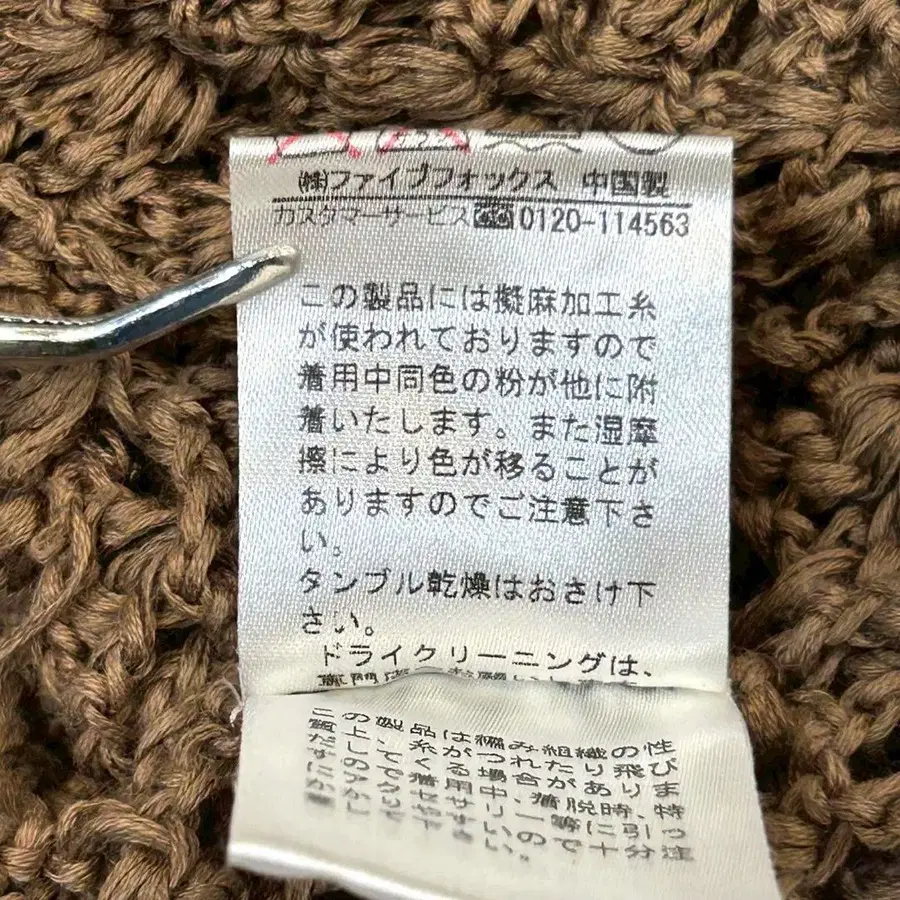 (株)ファイブフォックス 中国製
カスタマーサービス 0120-114563
この製品には擬麻加工糸
が使われておりますので
着用中同色の粉が他に附
着いたします。また湿摩
擦により色が移ることが
ありますのでご注意下さ
い。
タンブル乾燥はおさけ下
さい。
ドライクリーニングは、
この製品は編み組織の性
質上、糸がつれたり飛び
だしてくる場合がありま
着用中、着脱時、特
等に引っ
ので十分注